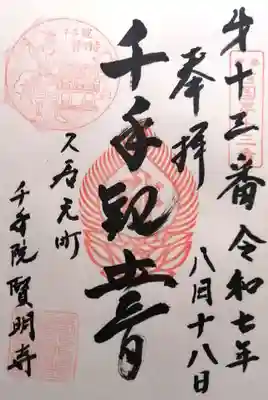 第十三番 令和七年
奉拝 八月十八日
千手観世音
久居元町
千手院賢明寺